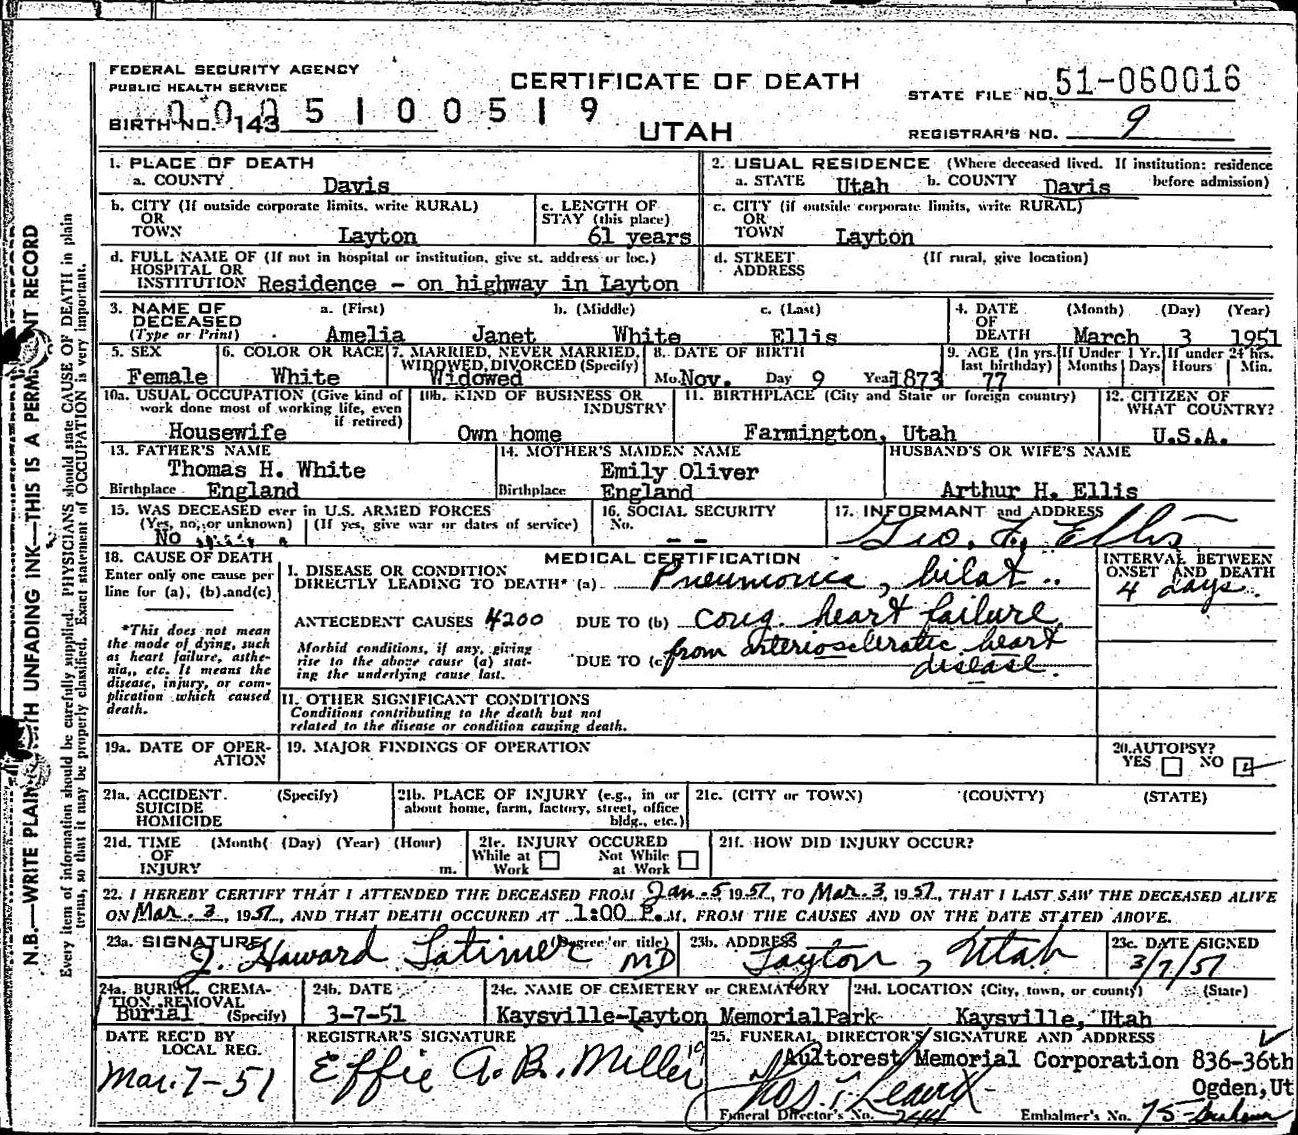 FEDERAL SECURITY AGENCY
PUBLIC HEALTH SERVICE
CERTIFICATE OF DEATH
UTAH
STATE FILE NO. 51-060016
BIRTH NO. 143
0005100519
REGISTRAR'S NO. 9
1. PLACE OF DEATH
a. COUNTY Davis
2. USUAL RESIDENCE (Where deceased lived. If institution: residence before admission)
a. STATE Utah b. COUNTY Davis
b. CITY (If outside corporate limits, write RURAL) OR TOWN Layton
c. LENGTH OF STAY (this place) 61 years
c. CITY (if outside corporate limits, write RURAL) OR TOWN Layton
d. FULL NAME OF (If not in hospital or institution, give st. address or loc.) HOSPITAL OR INSTITUTION Residence - on highway in Layton
d. STREET ADDRESS (If rural, give location)
3. NAME OF DECEASED (Type or Print) a. (First) b. (Middle) c. (Last)
Amelia Janet White Ellis
4. DATE OF DEATH (Month) (Day) (Year)
March 3 1951
5. SEX Female
6. COLOR OR RACE White
7. MARRIED, NEVER MARRIED, WIDOWED, DIVORCED (Specify) Widowed
8. DATE OF BIRTH Mo. Nov. Day 9 Year 1873
9. AGE (In yrs. last birthday) 77
If Under 1 Yr. Months Days
If under 24 hrs. Hours Min.
10a. USUAL OCCUPATION (Give kind of work done most of working life, even if retired) Housewife
10b. KIND OF BUSINESS OR INDUSTRY Own home
11. BIRTHPLACE (City and State or foreign country) Farmington, Utah
12. CITIZEN OF WHAT COUNTRY? U.S.A.
13. FATHER'S NAME Thomas H. White
Birthplace England
14. MOTHER'S MAIDEN NAME Emily Oliver
Birthplace England
HUSBAND'S OR WIFE'S NAME
Arthur H. Ellis
15. WAS DECEASED ever in U.S. ARMED FORCES
(Yes, no, or unknown) (If yes, give war or dates of service)
No
16. SOCIAL SECURITY No. - -
17. INFORMANT and ADDRESS
Geo. F. Ellis
18. CAUSE OF DEATH
Enter only one cause per line for (a), (b) and (c)
*This does not mean the mode of dying, such as heart failure, asthenia, etc. It means the disease, injury, or complication which caused death.
MEDICAL CERTIFICATION
I. DISEASE OR CONDITION DIRECTLY LEADING TO DEATH* (a) Pneumonia, bilat..
INTERVAL BETWEEN ONSET AND DEATH
4 days.
ANTECEDENT CAUSES 4200 DUE TO (b) cong. heart failure
Morbid conditions, if any, giving rise to the above cause (a) stating the underlying cause last.
DUE TO (c) from arteriosclerotic heart disease.
II. OTHER SIGNIFICANT CONDITIONS
Conditions contributing to the death but not related to the disease or condition causing death.
19a. DATE OF OPERATION
19. MAJOR FINDINGS OF OPERATION
20. AUTOPSY?
YES NO
21a. ACCIDENT SUICIDE HOMICIDE (Specify)
21b. PLACE OF INJURY (e.g., in or about home, farm, factory, street, office bldg., etc.)
21c. (CITY or TOWN) (COUNTY) (STATE)
21d. TIME OF INJURY (Month( (Day) (Year) (Hour) m.
21e. INJURY OCCURED
While at Work Not While at Work
21f. HOW DID INJURY OCCUR?
22. I HEREBY CERTIFY THAT I ATTENDED THE DECEASED FROM Jan. 5, 1951, TO Mar. 3, 1951, THAT I LAST SAW THE DECEASED ALIVE
ON Mar. 3, 1951, AND THAT DEATH OCCURED AT 1:00 P.M, FROM THE CAUSES AND ON THE DATE STATED ABOVE.
23a. SIGNATURE (Degree or title)
J. Howard Latimer MD
23b. ADDRESS
Layton, Utah
23c. DATE SIGNED
3/7/51
24a. BURIAL, CREMATION, REMOVAL (Specify) Burial
24b. DATE 3-7-51
24c. NAME OF CEMETERY or CREMATORY
Kaysville-Layton Memorial Park
24d. LOCATION (City, town, or county) (State)
Kaysville, Utah
DATE REC'D BY LOCAL REG.
Mar. 7-51
REGISTRAR'S SIGNATURE
Effie A. B. Miller
25. FUNERAL DIRECTOR'S SIGNATURE AND ADDRESS
Aultorest Memorial Corporation 836-36th
Ogden, Ut
Funeral Director's No.
Embalmer's No. 75
N.B.—WRITE PLAINLY WITH UNFADING INK—THIS IS A PERMANENT RECORD
Every item of information should be carefully supplied. PHYSICIANS should state CAUSE OF DEATH in plain
terms, so that it may be properly classified. Exact statement of OCCUPATION is very important.